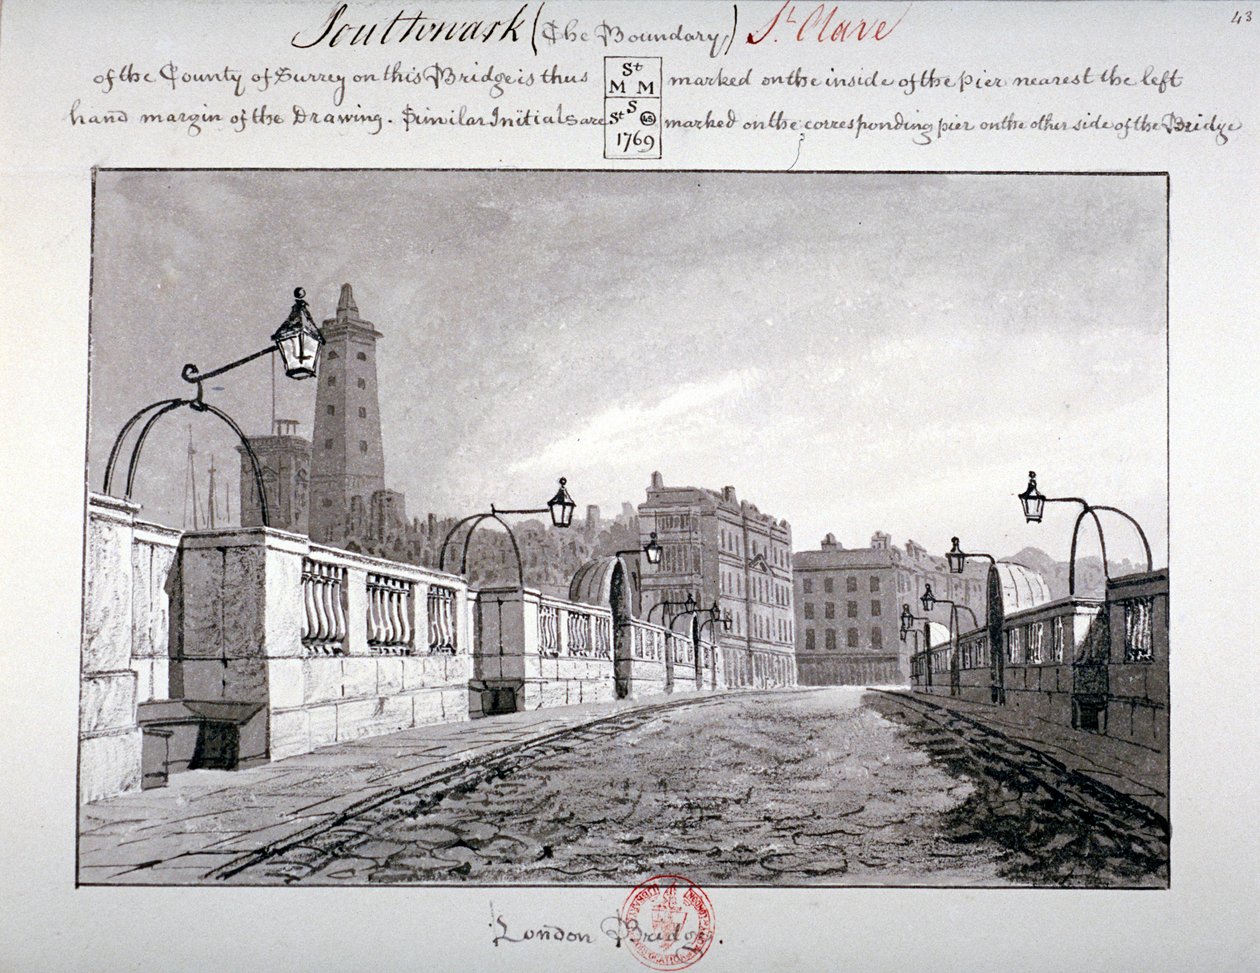 Southwark (The Boundary,) St. Olave
43
of the County of Surrey on this Bridge is thus St M M marked on the inside of the pier nearest the left
hand margin of the Drawing. Similar Initials are St S 1769 marked on the corresponding pier on the other side of the Bridge
London Bridge.